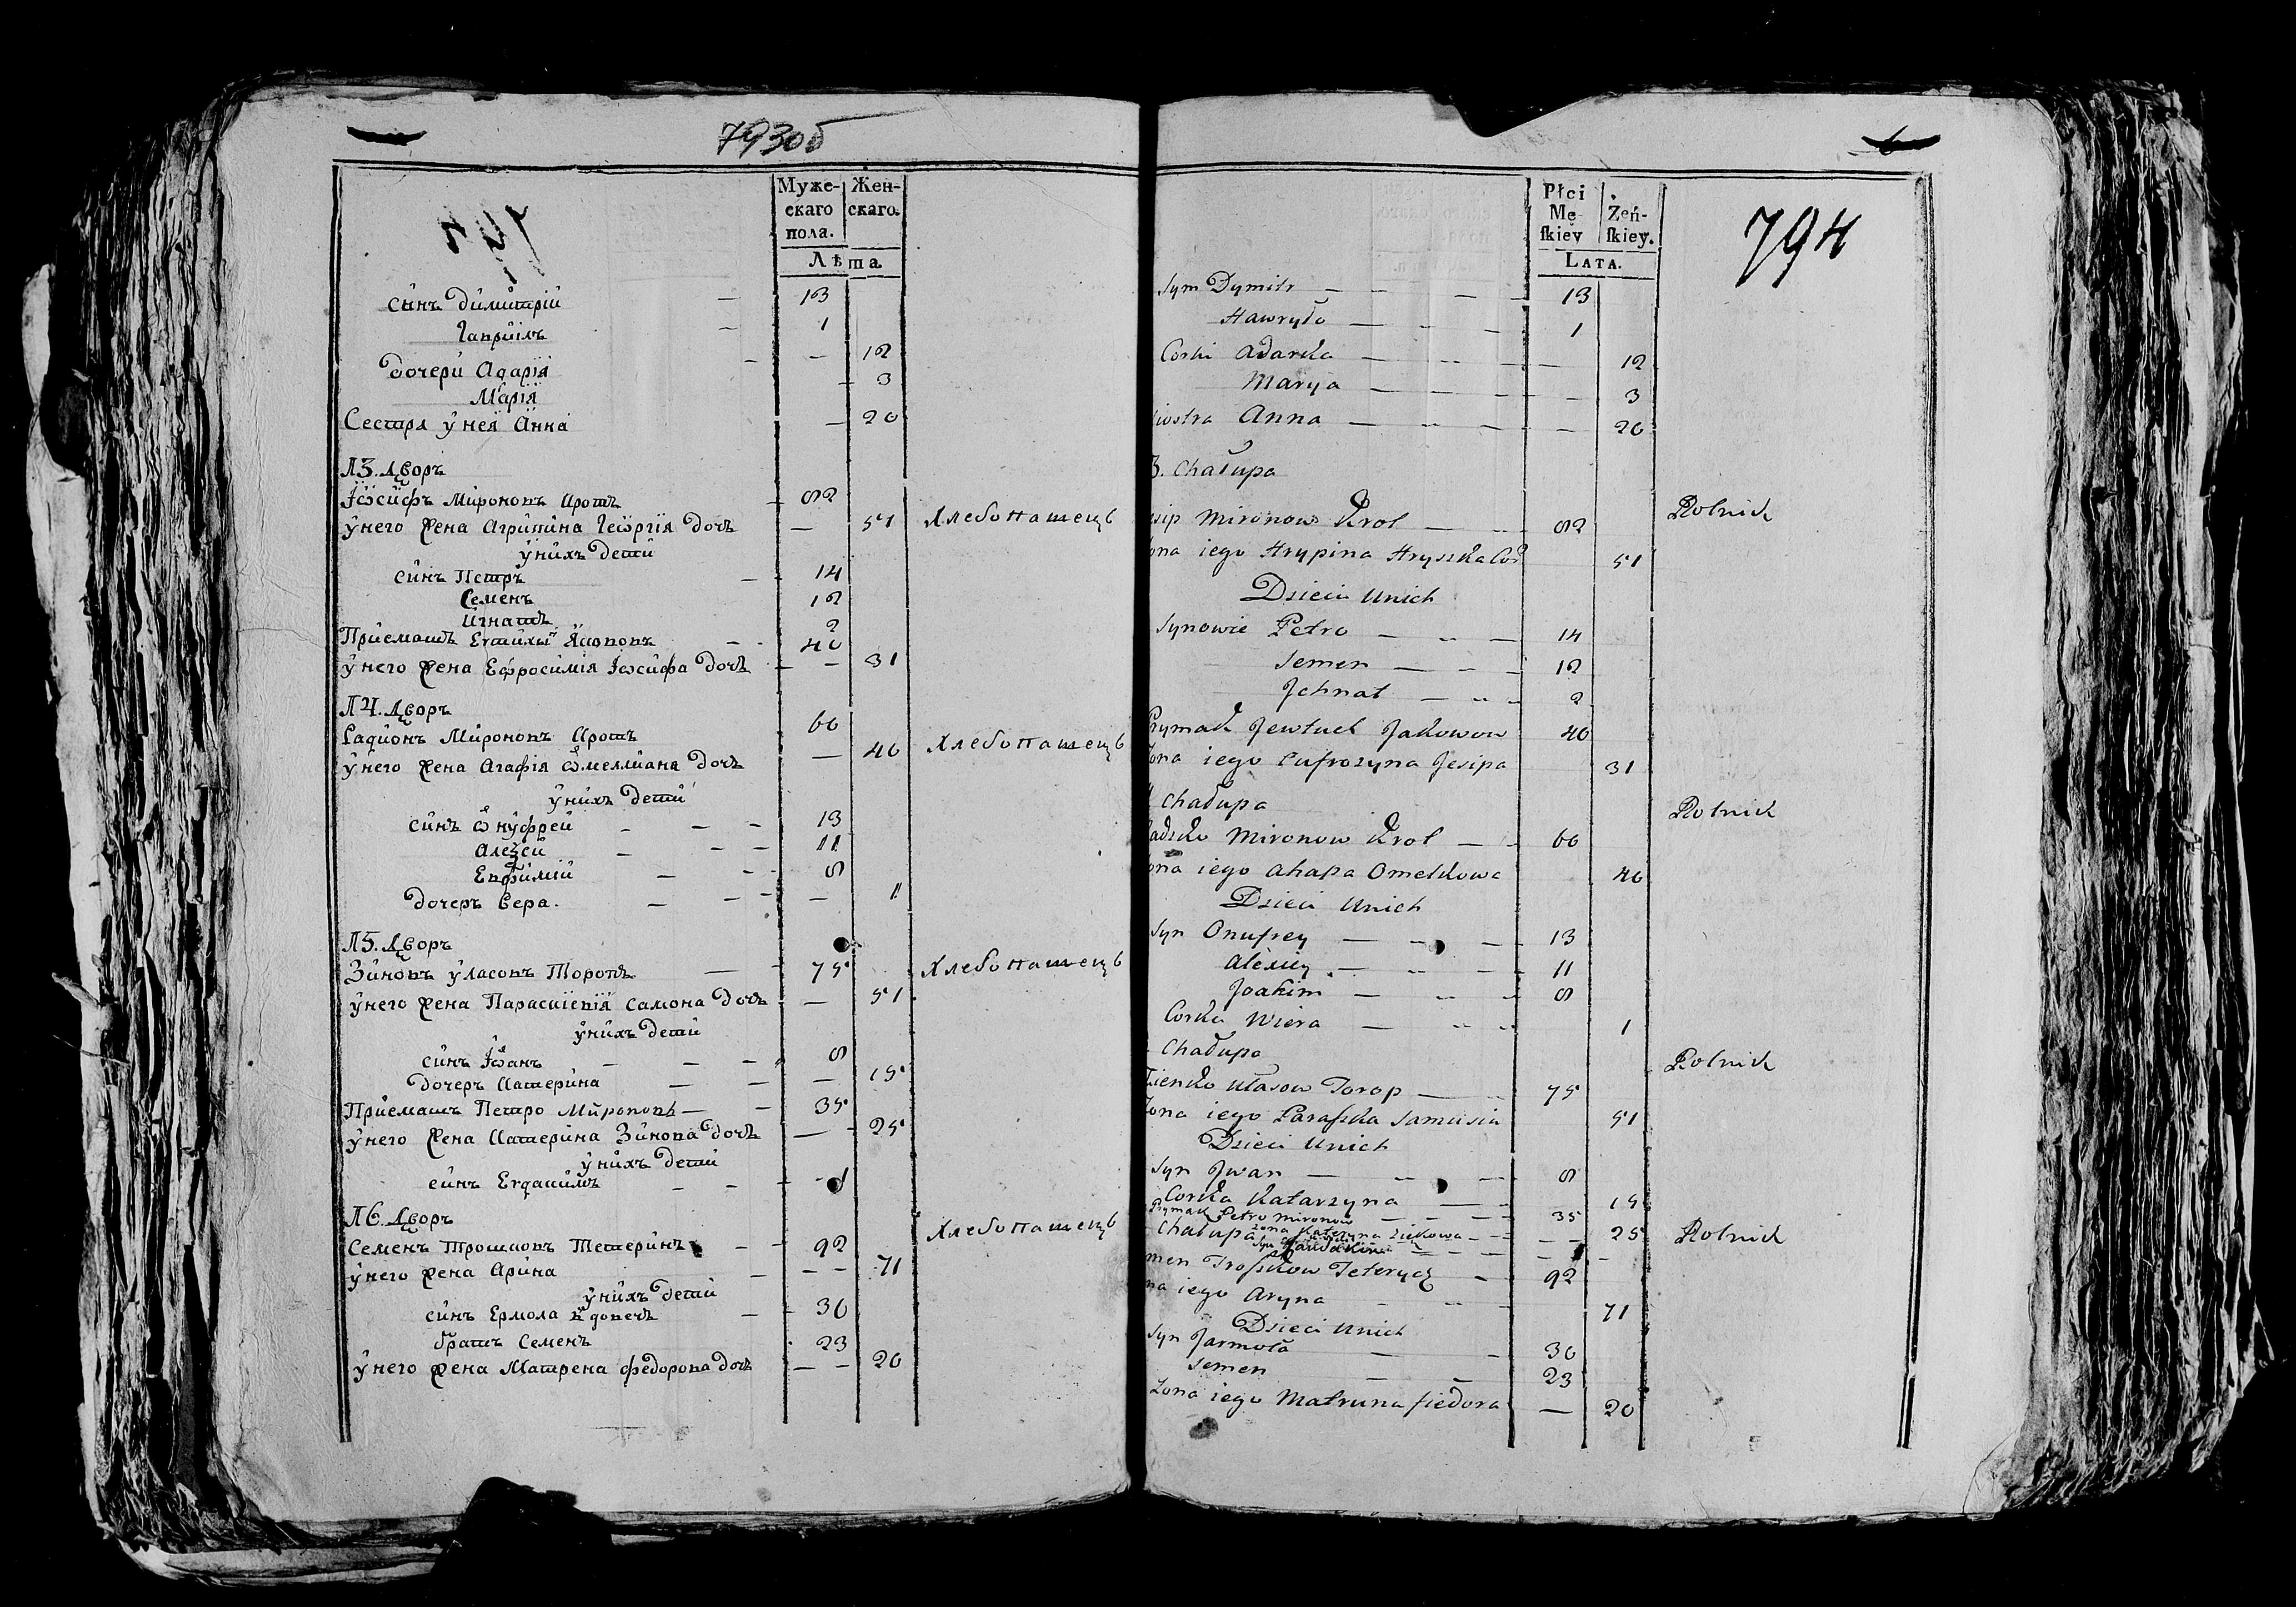 793об
Муже-
скаго
пола.
Жен-
скаго.
Лѣта
синъ Димитрій — 13
Гавріилъ — 1
дочери Адарія — 12
Марія — 3
Сестра у нея Анна — 20
Л3. Дворъ
Іѡсифъ Мироновъ Кротъ — 82 Хлебопашецъ
у него жена Агрипина Георгія дочь — 51
у нихъ дети
синъ Петръ — 14
Семенъ 12
Игнатъ 2
Приематъ Евтихы Якововъ — 40
у него жена Ефросимія Іѡсифа дочь — 31
Л4. Дворъ
Радионъ Мироновъ Кротъ 60 Хлебопашецъ
у него жена Агафія ѡмелляна дочь — 40
у нихъ дети
синъ ѡнуфрей — 13
Алеѯей — 11
Евфимій — 8
дочеръ Вера. — 1
Л5. Дворъ
Зиновъ Уласовъ Торопъ — 75 Хлебопашецъ
у него жена Параскіевія Самона дочь — 51
у нихъ дети
синъ Іѡанъ — 8
дочеръ Катерина — 15
Приематъ Петро Мироновъ — 35
у него жена Катерина Зинова дочь — 25
у нихъ дети
синъ Евдакимъ — 1
Л6. Дворъ
Семенъ Трошковъ Тетеринъ — 92 Хлебопашецъ
у него жена Арина — 71
у нихъ дети
синъ Ермола вдовецъ — 30
братъ Семенъ 23
у него жена Матрена Федорова дочь — 20
794
Płci
Mę-
ſkiey
Żeń-
ſkiey.
LATA.
Syn Dymitr — 13
Hawryło — 1
Corki Adarka — 12
Marya — 3
Siostra Anna — 20
3. Chałupa
Mironow Krot — 82 Rolnik
Zona iego Hrypina Hryszka Cor 51
Dzieci Unich
Synowie Petro — 14
Semen — 12
Jehnat — 2
Prymak Jewtuch Jakowow 40
Zona iego Eufrozyna Jesipa 31
Chałupa
Mironow Krot — 60 Rolnik
Zona iego Ahapa Omelkowa 40
Dzieci Unich
Syn Onufrey — 13
Alexiey — 11
Joakim — 8
Corka Wiera — 1
Chałupa
Zienko Ułasow Torop — 75 Rolnik
Zona iego Paraſka Samusia 51
Dzieci Unich
Syn Jwan — 8
Corka Katarzyna — 15
Prymak Petro Mironow — 35
Chałupa Zona Kateryna Zinkowa — 25 Rolnik
Syn Jawdokim — 1
Troſzkow Teterycz — 92
iego Aryna — 71
Dzieci Unich
Syn Jarmoła — 30
Semen — 23
Zona iego Matruna Fiedora — 20